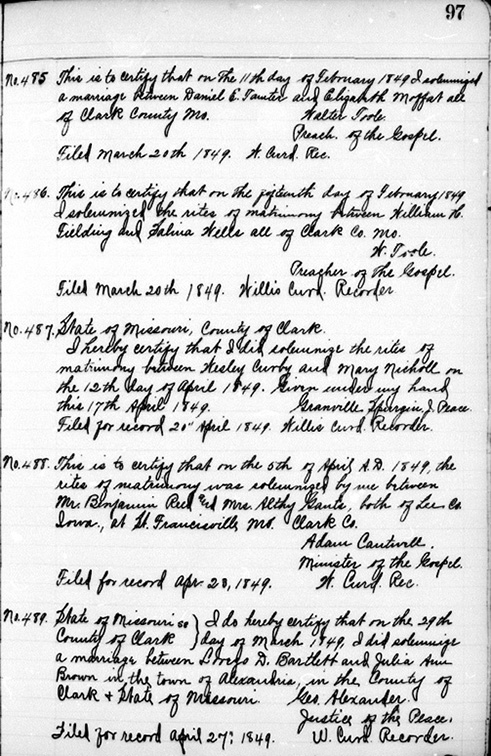 97
No. 485 This is to certify that on the 11th day of February 1849 I solemnized
a marriage between Daniel E. and Elizabeth Moffat all
of Clark County Mo. Walter Toole.
Preach. of the Gospel.
Filed March 20th 1849. W. Curd. Rec.
No. 486. This is to certify that on the fifteenth day of February 1849
I solemnized the rites of matrimony between William H.
Fielding and Salina Wells all of Clark Co. Mo.
W. Toole.
Preacher of the Gospel.
Filed March 20th 1849. Willis Curd. Recorder
No. 487. State of Missouri, County of Clark.
I hereby certify that I did solemnize the rites of
matrimony between Wesley Curby and Mary Nicholl on
the 12th day of April 1849. Given under my hand
this 17th April 1849. Granville Spurgin J. Peace.
Filed for record 20" April 1849. Willis Curd. Recorder.
No. 488. This is to certify that on the 5th of April A.D. 1849, the
rites of matrimony was solemnized by me between
Mr. Benjamin Reed and Mrs. Althy Gantz, both of Lee Co.
Iowa., at St. Francisville, Mo. Clark Co.
Adam Cantwell.
Minister of the Gospel.
Filed for record Apr. 20, 1849. W. Curd. Rec.
No. 489. State of Missouri ss } I do hereby certify that on the 29th
County of Clark } day of March 1849, I did solemnize
a marriage between D. Bartlett and Julia Ann
Brown in the town of Alexandria, in the County of
Clark + State of Missouri. Geo. Alexander.
Justice of the Peace.
Filed for record April 27: 1849. W. Curd. Recorder.